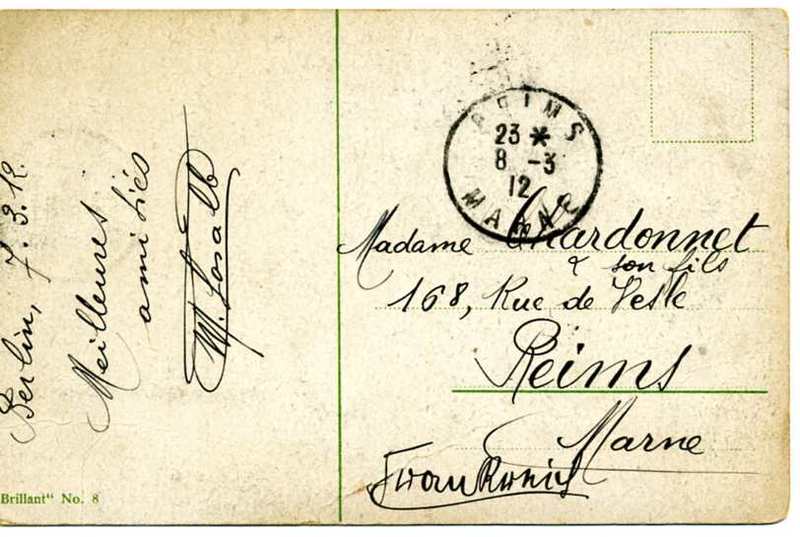 Berlin, 7.3.12.
Meilleures
amitiés
Brillant" No. 8
REIMS
23 *
8 -3
12
MARNE
Madame Chardonnet
& son fils
168, Rue de Vesle
Reims
Marne
Frankreich